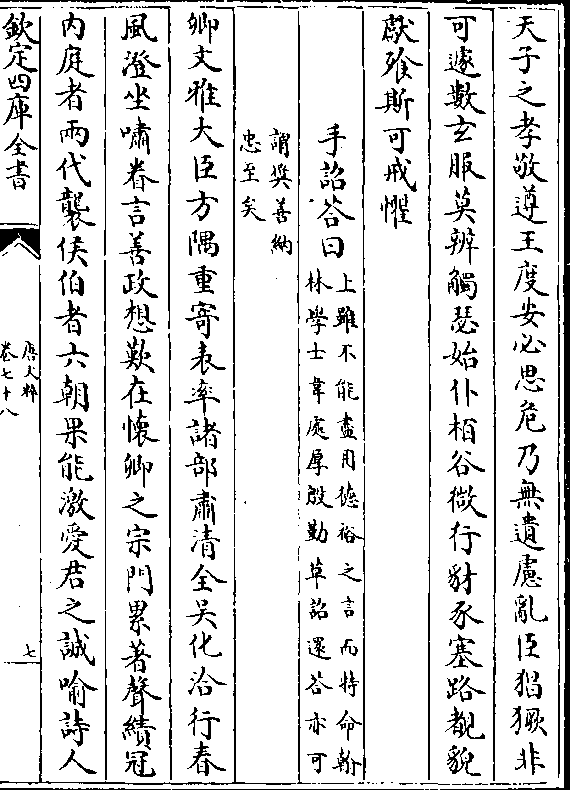 天子之孝敬遵王度安必思危乃無遺慮亂臣猖獗非
可遽數玄服莫辨觸瑟始仆栢谷微行豺豕塞路覩貌
獻飱斯可戒懼
手詔答曰
上雖不能盡用德裕之言而特命翰
林學士韋處厚殷勤草詔還答亦可
謂奬善納
忠至矣
卿文雅大臣方隅重寄表率諸部肅清全吳化洽行春
風澄坐嘯眷言善政想歎在懷卿之宗門累著聲績冠
内庭者兩代襲侯伯者六朝果能激愛君之誠喻詩人
欽定四庫全書
唐文粹
卷七十八
七